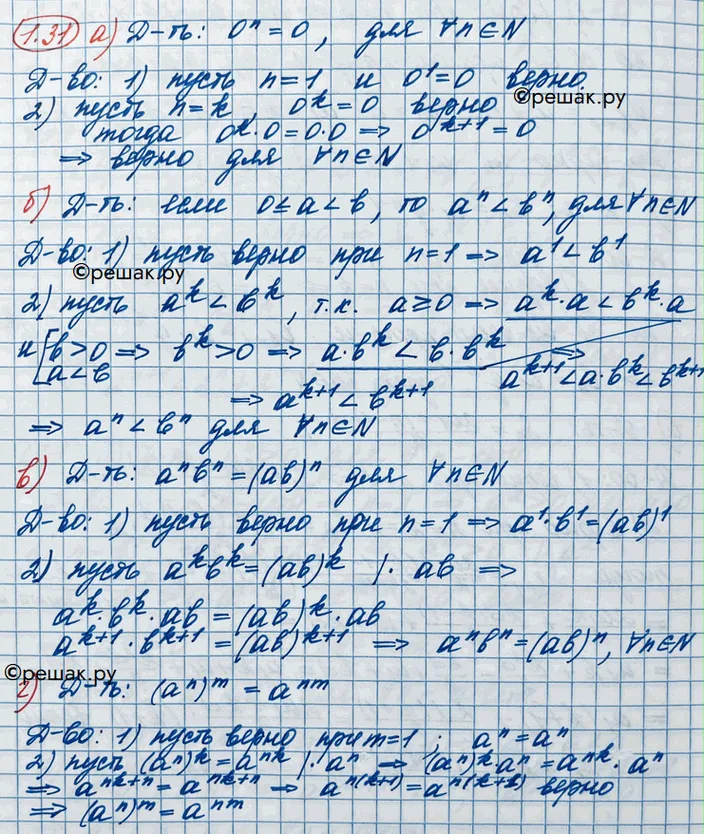 1.31 а) Д-ть: 0ⁿ = 0, для ∀n∈N
Д-во: 1) пусть n = 1 и 0¹ = 0 верно.
©решак.ру
2) пусть n = k, 0ᵏ = 0 верно
тогда 0ᵏ·0 = 0·0 => 0ᵏ⁺¹ = 0
=> верно для ∀n∈N
б) Д-ть: если 0 ≤ a < b, то aⁿ < bⁿ, для ∀n∈N
Д-во: 1) пусть верно при n = 1 => a¹ < b¹
©решак.ру
2) пусть aᵏ < bᵏ, т.к. a ≥ 0 => aᵏ·a < bᵏ·a
и [b > 0 => bᵏ > 0 => a·bᵏ < b·bᵏ =>
a < b
aᵏ⁺¹ < a·bᵏ < bᵏ⁺¹
=> aᵏ⁺¹ < bᵏ⁺¹
=> aⁿ < bⁿ для ∀n∈N
в) Д-ть: aⁿbⁿ = (ab)ⁿ для ∀n∈N
Д-во: 1) пусть верно при n = 1 => a¹·b¹ = (ab)¹
2) пусть aᵏbᵏ = (ab)ᵏ |· ab =>
aᵏ·bᵏ·ab = (ab)ᵏ·ab
aᵏ⁺¹·bᵏ⁺¹ = (ab)ᵏ⁺¹ => aⁿbⁿ = (ab)ⁿ, ∀n∈N
©решак.ру
г) Д-ть: (aⁿ)ᵐ = aⁿᵐ
Д-во: 1) пусть верно при m = 1; aⁿ = aⁿ
2) пусть (aⁿ)ᵏ = aⁿᵏ |· aⁿ → (aⁿ)ᵏ·aⁿ = aⁿᵏ·aⁿ
=> aⁿᵏ⁺ⁿ = aⁿᵏ⁺ⁿ → aⁿ⁽ᵏ⁺¹⁾ = aⁿ⁽ᵏ⁺¹⁾ верно
=> (aⁿ)ᵐ = aⁿᵐ